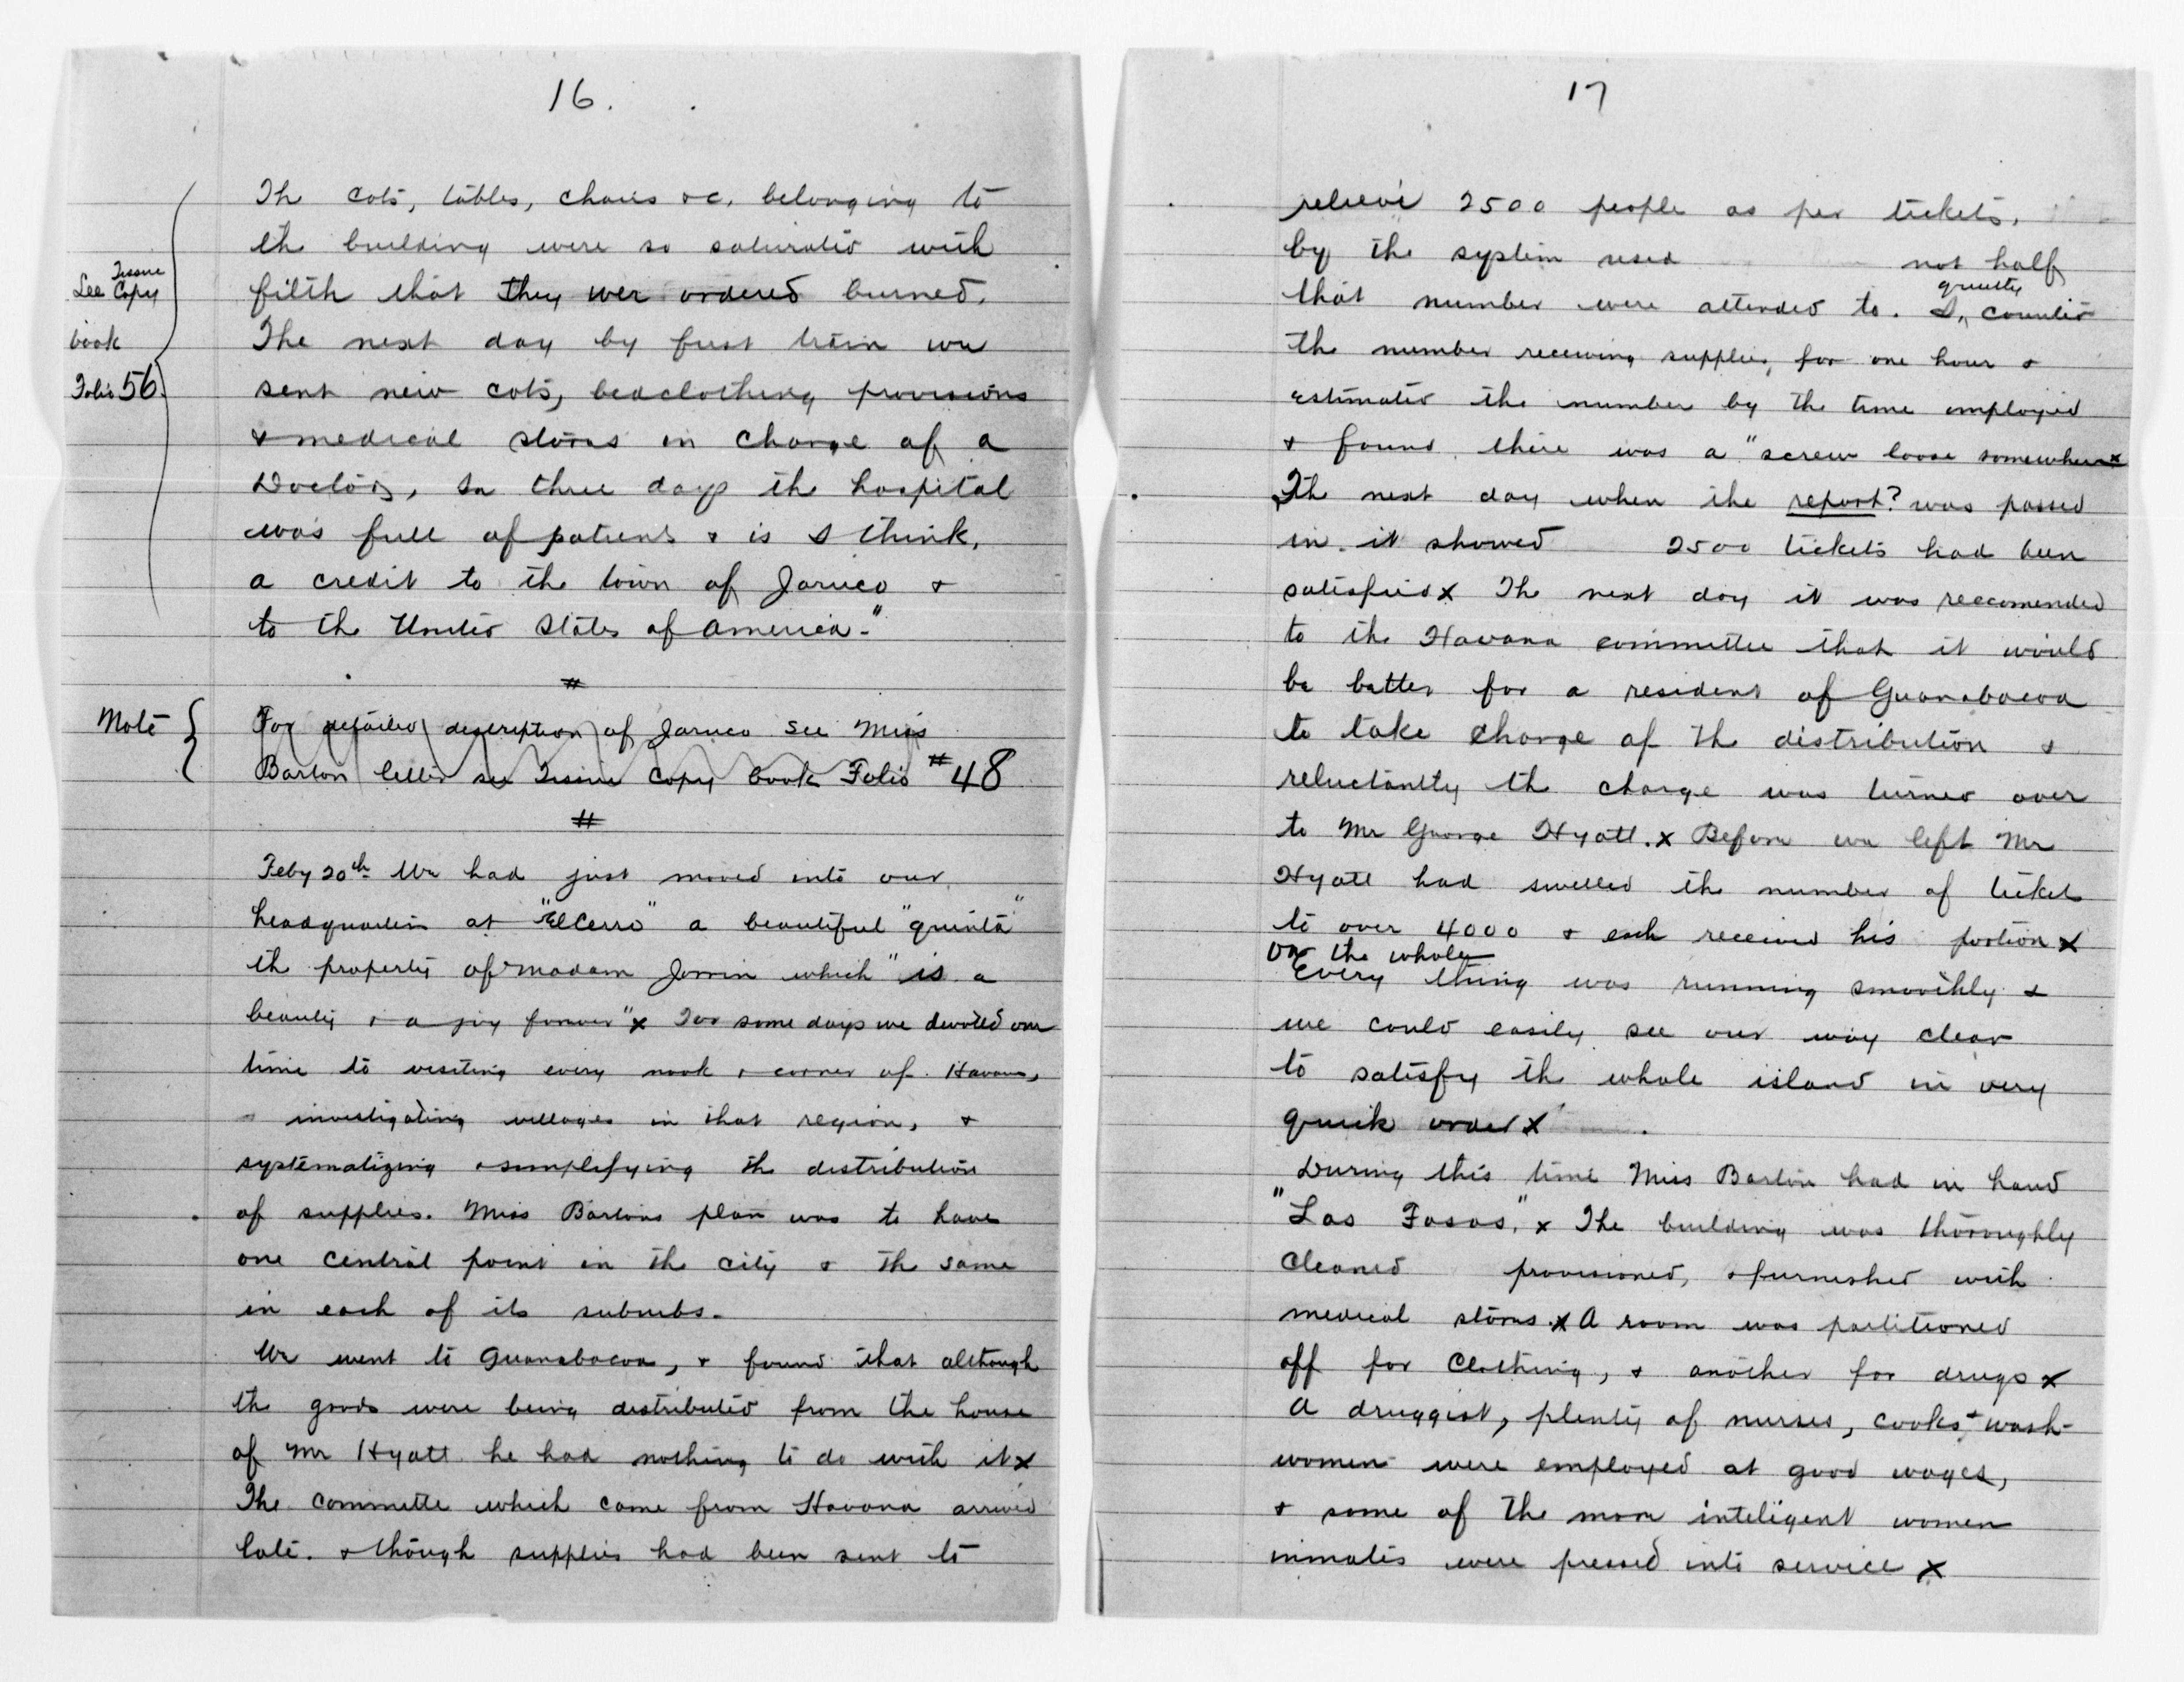 16.
The cots, tables, chairs &c. belonging to
the building were so saturated with
See Tissue Copy
filth that they wer ordered burned.
book
The next day by first train we
Folio 56
sent new cots, bedclothing provisions
& medical stores in charge of a
Doctor, In three days the hospital
was full of patients & is I think,
a credit to the town of Jaruco &
to the United States of America."
#
Note { For detailed description of Jaruco see Miss
Barton letter see Tissue Copy book Folio #48
#
Feby 20th We had just moved into our
headquarters at "El Cerro" a beautiful "quinta"
the property of Madam Jorrin which "is a
beauty & a joy forever" x For some days we devoted our
time to visiting every nook & corner of Havana,
investigating villages in that region, &
systematizing & simplifying the distribution
of supplies. Miss Bartons plan was to have
one central point in the city & the same
in each of its suburbs.
We went to Guanabacoa, & found that although
the goods were being distributed from the house
of Mr Hyatt he had nothing to do with it x
The committe which came from Havana arrived
late. & though supplies had been sent to
17
relieve 2500 people as per tickets,
by the system used not half
that number were attended to. I, quietly counted
the number receiving supplies, for one hour &
estimated the number by the time employed
& found there was a "screw loose somewhere x
The next day when the report? was passed
in it showed 2500 tickets had been
satisfied x The next day it was reccomended
to the Havana committee that it would
be better for a resident of Guanabacoa
to take charge of the distribution &
reluctantly the charge was turned over
to Mr George Hyatt. x Before we left Mr
Hyatt had swelled the number of tickets
to over 4000 & each received his portion x
On the whole
Every thing was running smoothly &
we could easily see our way clear
to satisfy the whole island in very
quick order x
During this time Miss Barton had in hand
"Los Fosos," x The building was thoroughly
cleaned provisioned, & furnished with
medical stores. x A room was partitioned
off for clothing, & another for drugs x
A druggist, plenty of nurses, cooks & wash-
women were employed at good wages,
& some of the more inteligent women
inmates were pressed into service x